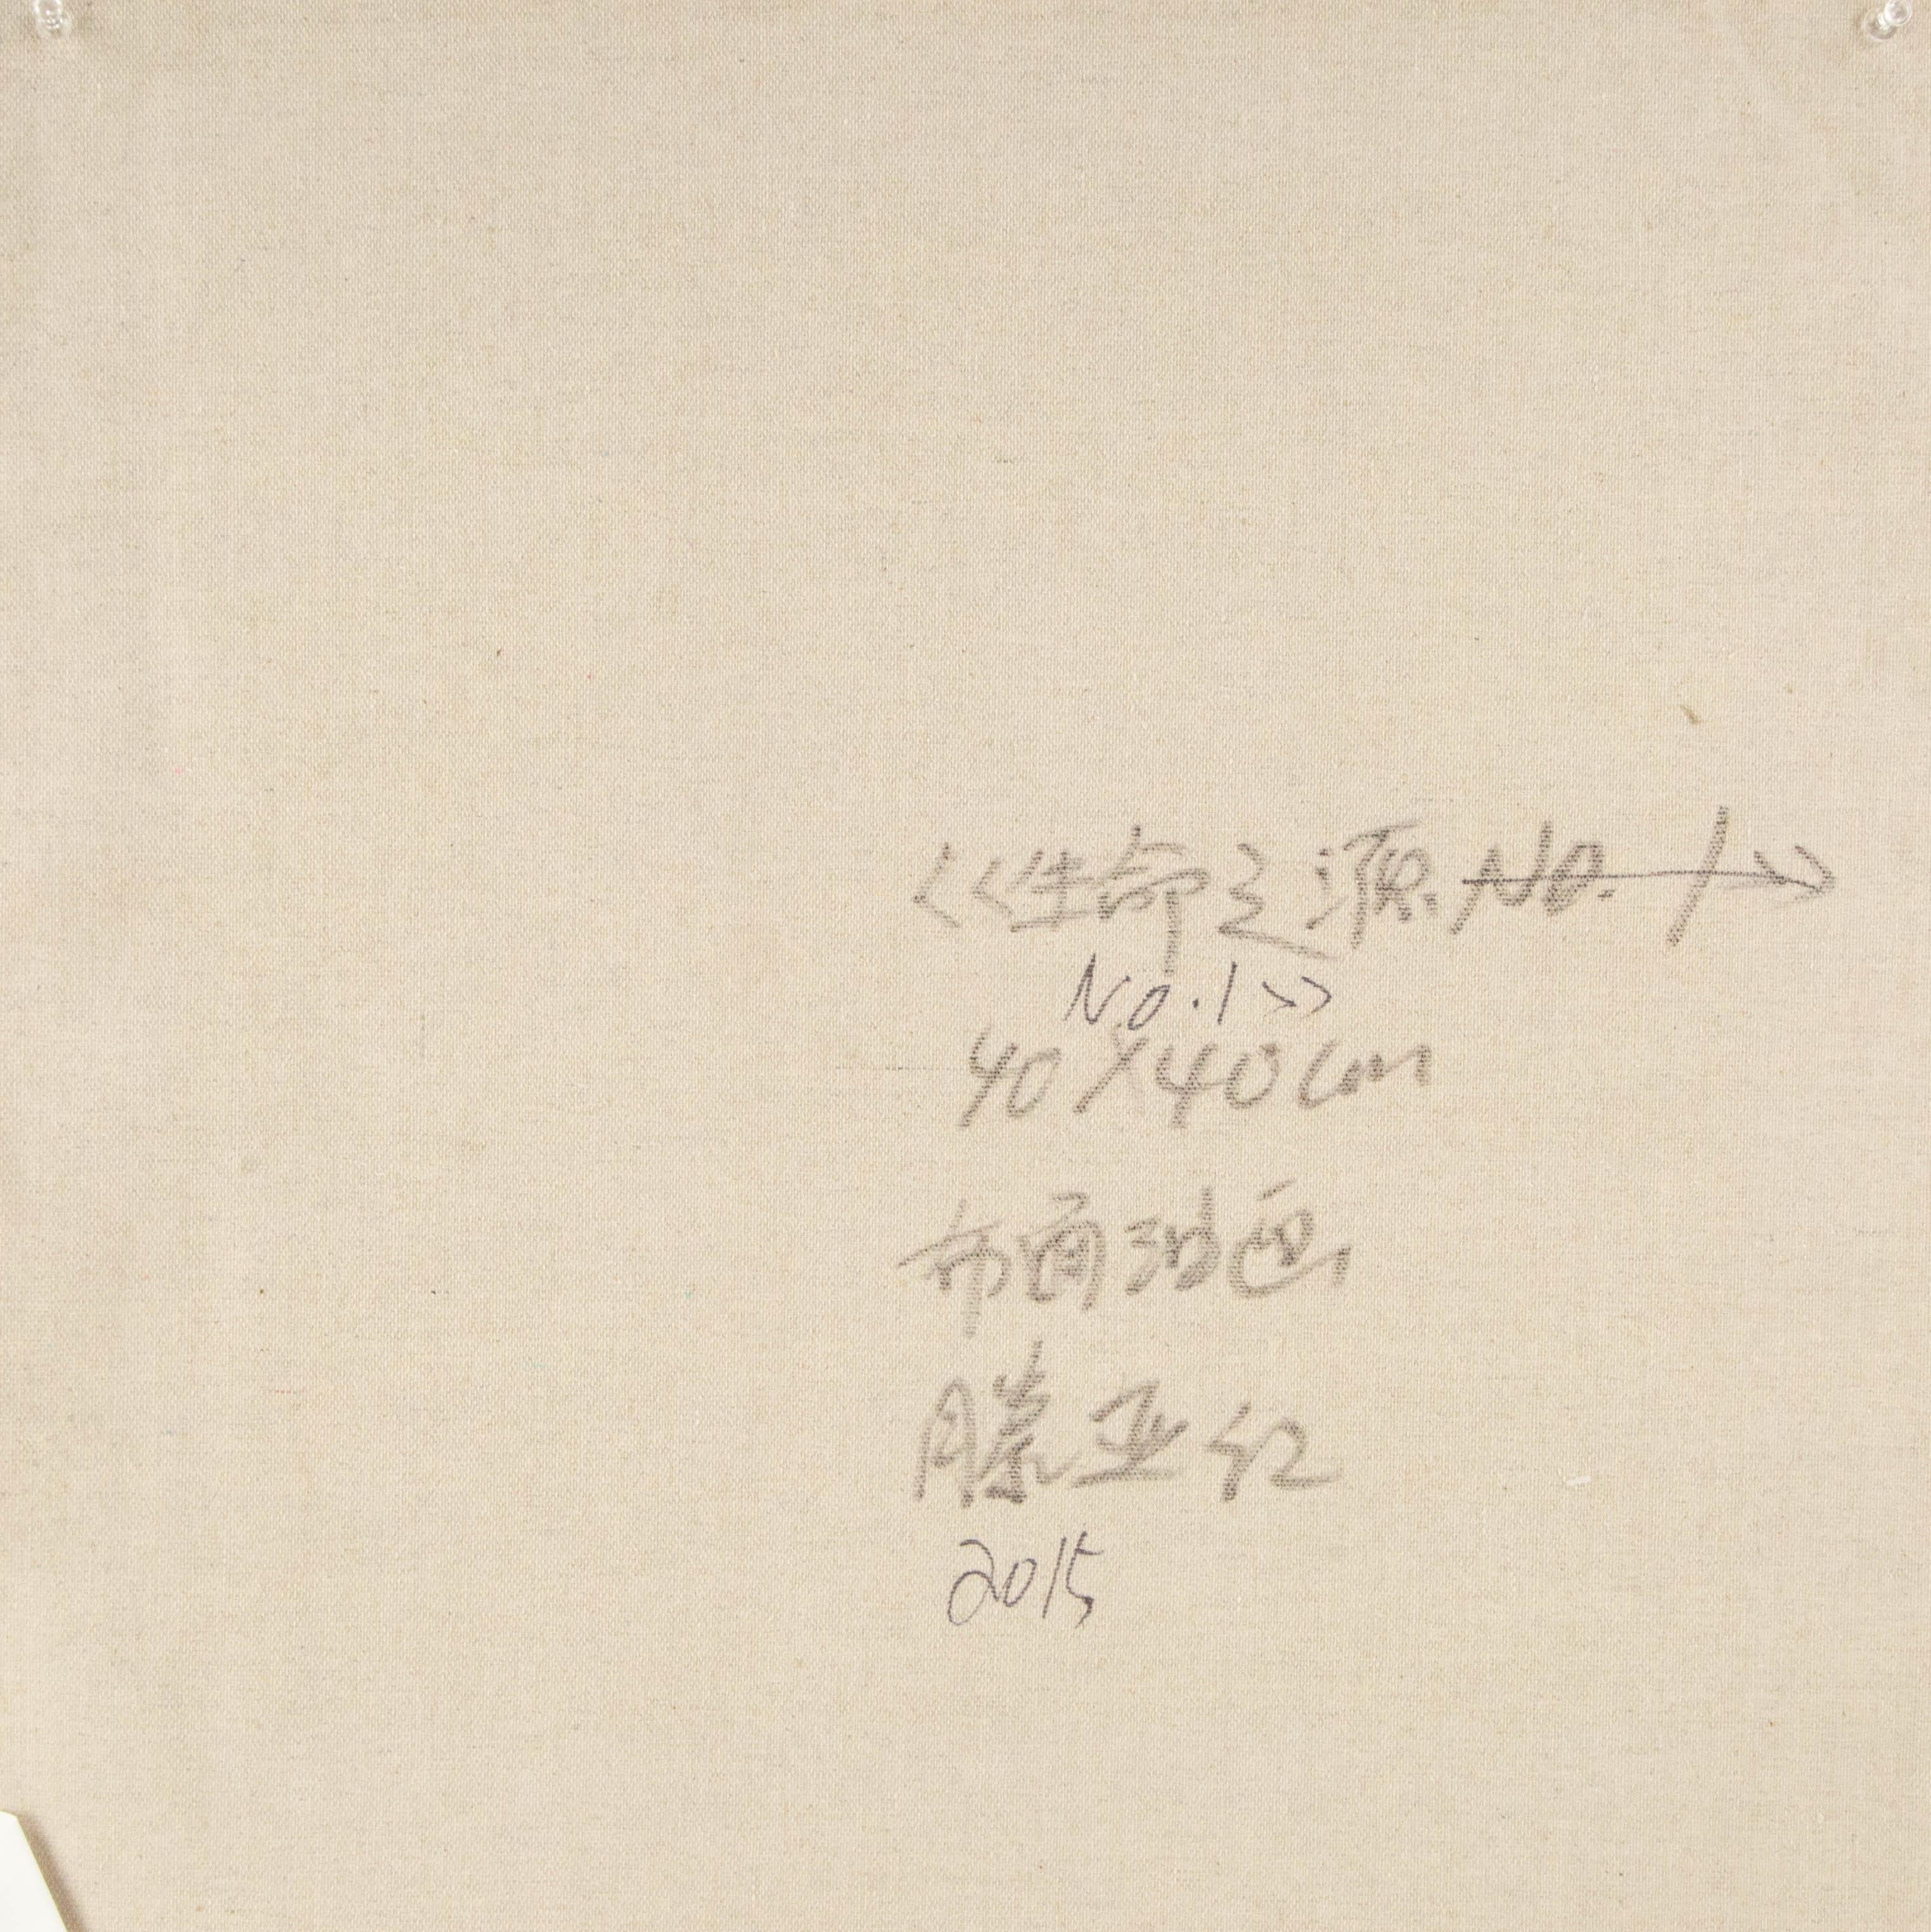 《生命之源. No. 1》
No.1》
40X40cm
布面油画
滕亚红
2015